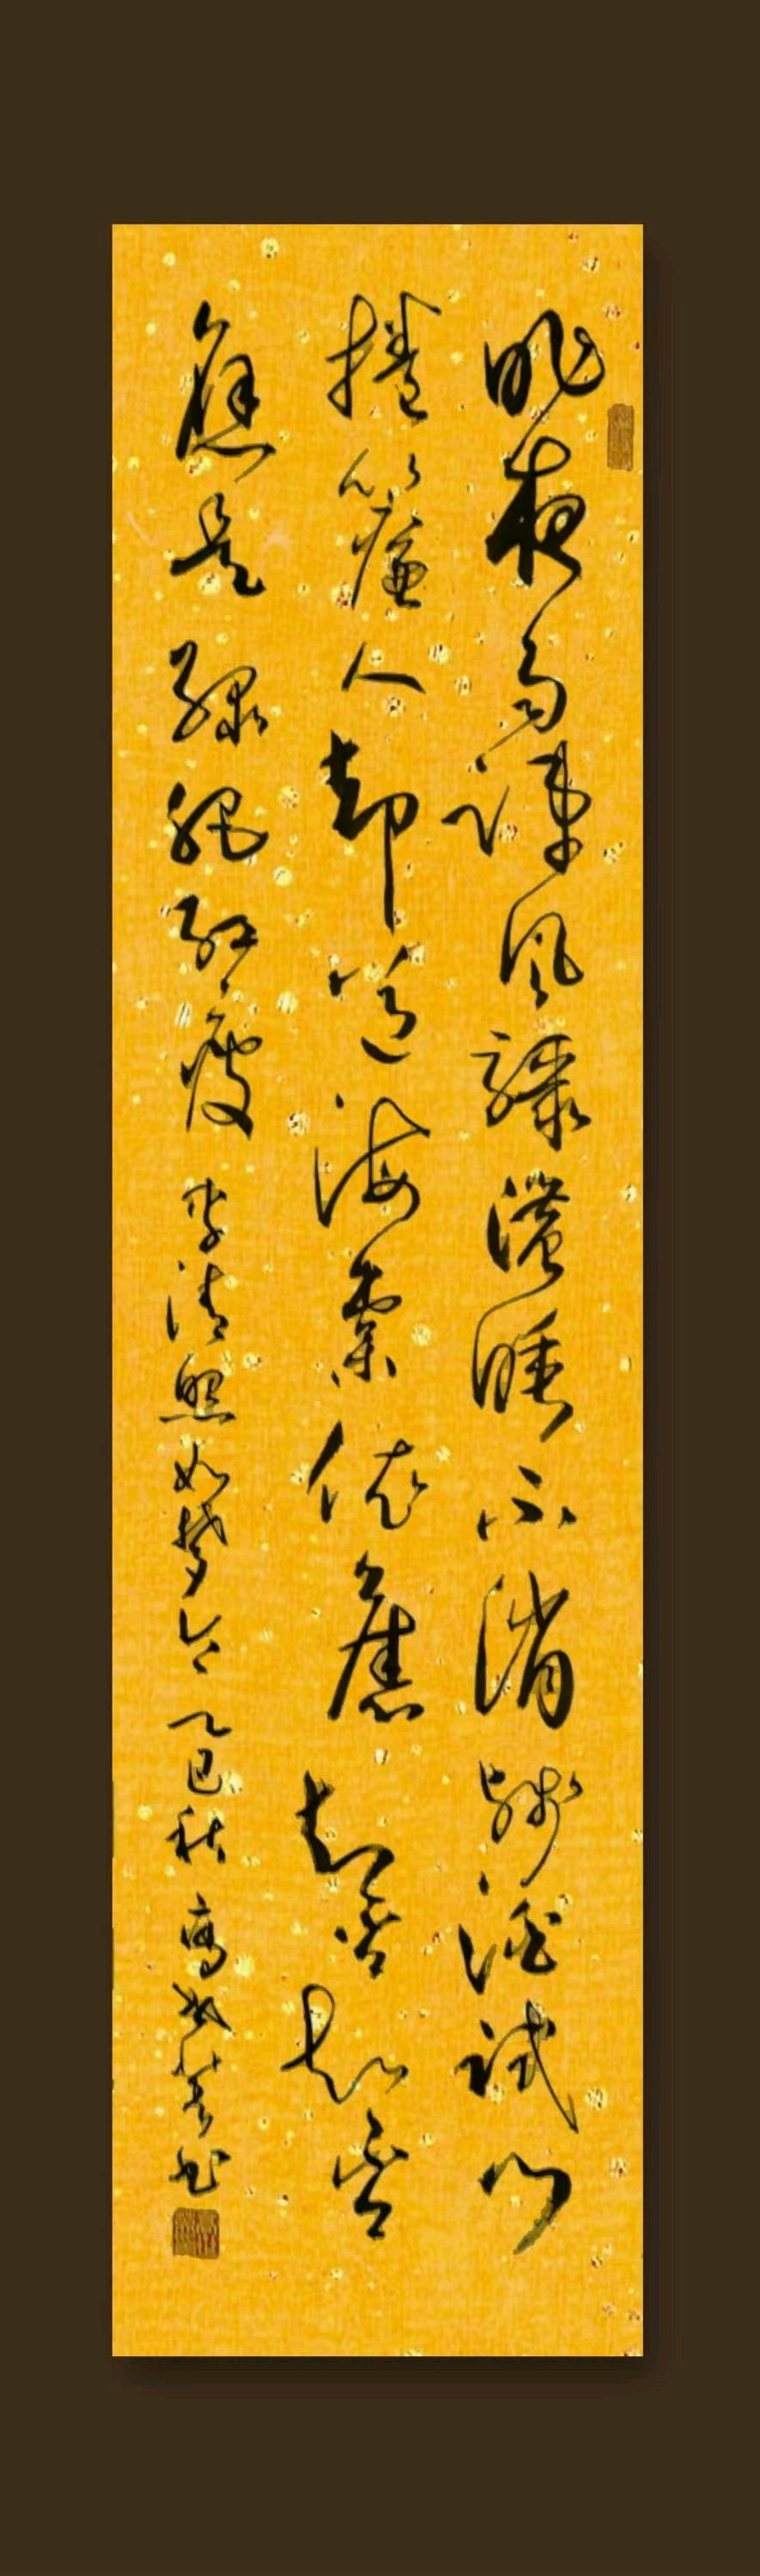 昨夜雨疎風驟濃睡不消殘酒試問
捲簾人却道海棠依舊知否知否
應是綠肥紅瘦 李清照如夢令 乙巳秋 高 書